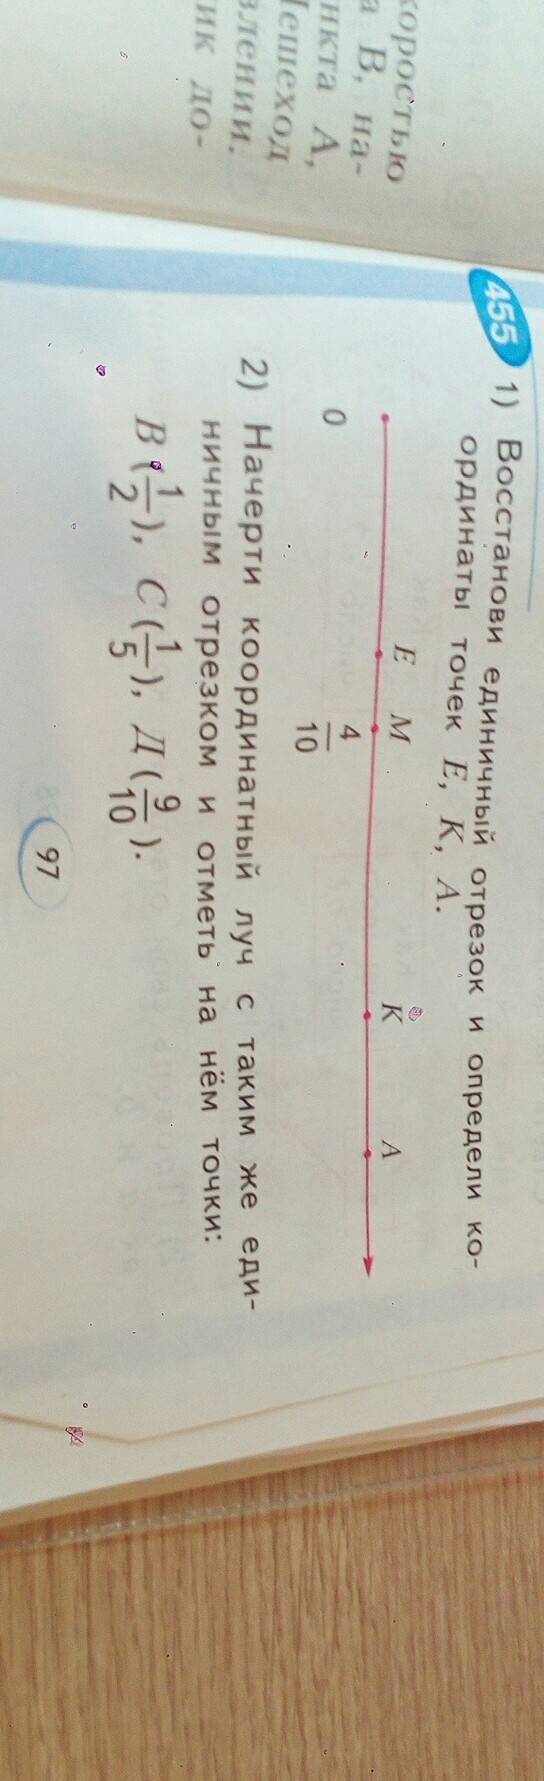 коростью
а В, на-
нкта А,
Пешеход
влении.
ик до-
455 1) Восстанови единичный отрезок и определи ко-
ординаты точек E, K, A.
E M K A
0 4/10
2) Начерти координатный луч с таким же еди-
ничным отрезком и отметь на нём точки:
B (1/2), C (1/5), Д (9/10).
97